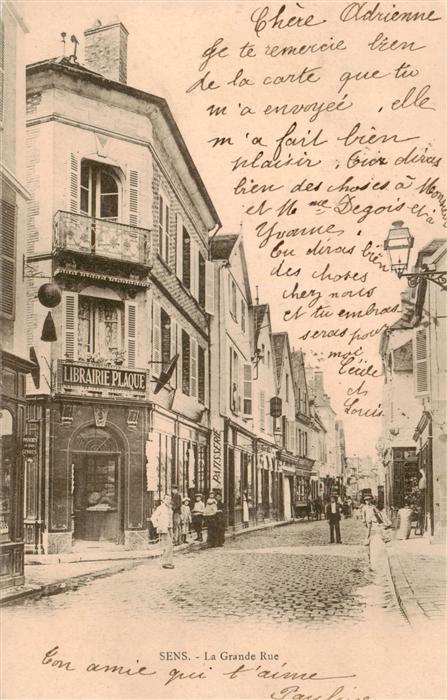 Chère Adrienne
Je te remercie bien
de la carte que tu
m'a envoyée, elle
m'a fait bien
plaisir, Tu diras
bien des choses à Mons
et Mme Degois et à
Yvanne
Tu diras bien
des choses
chez nous
et tu embras
seras pour
moi
Cécile
et
Louis
LIBRAIRIE PLAQUE
PATISSERIE
SENS. - La Grande Rue
Ton amie qui t'aime
Pauline